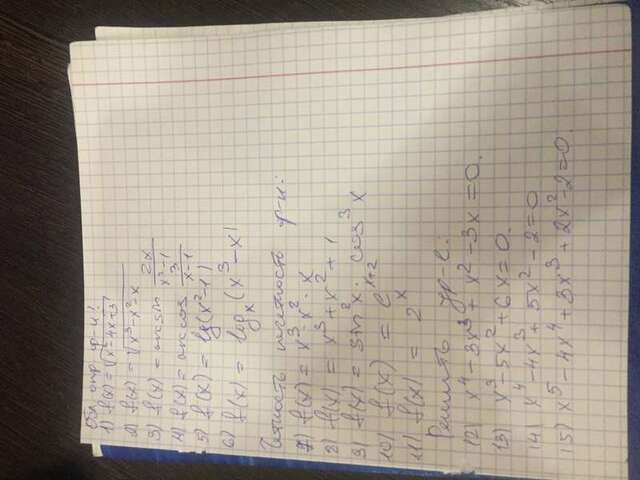 Обл опр ф-и!
1) f(x) = √(x²-4x+3)
2) f(x) = √(x³-x²-x)
3) f(x) = arcsin 2x/(x²-1)
4) f(x) = arccos 3/(x-1)
5) f(x) = lg(x²-1)
6) f(x) = logₓ(x³-x)
Четность нечетность ф-и:
7) f(x) = x³·x²·x
8) f(x) = x³+x²+1
9) f(x) = sin²x · cos³x
10) f(x) = e^(x+2)
11) f(x) = 2ˣ
Решить ур-е:
12) x⁴-3x³+x²-3x=0.
13) x³-5x²+6x=0.
14) x⁴-4x³+5x²-2=0
15) x⁵-4x⁴+3x³+2x²-2=0